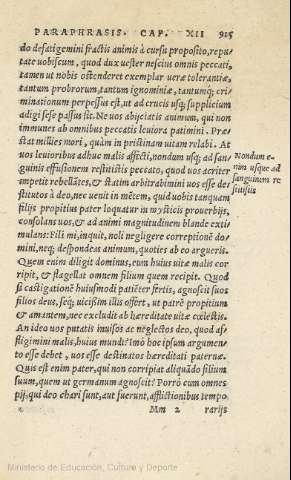 PARAPHRASIS. CAP. XII 925
do defatigemini fractis animis à cursu proposito, repu-
tate uobiscum, quod dux uester nescius omnis peccati,
tamen ut nobis ostenderet exemplar ueræ tolerantiæ,
tantum probrorum, tantum ignominiæ, tantumq; cri-
minationum perpessus est, ut ad crucis usq; supplicium
adigi sese passus sit. Ne uos abijciatis animum, qui non
immunes ab omnibus peccatis leuiora patimini. Præ-
stat millies mori, quàm in pristinam uitam relabi. At
uos leuioribus adhuc malis afflicti, nondum usq; ad san-
guinis effusionem restitistis peccato, quod uos acriter
impetit rebellātes, & statim arbitramini uos esse de-
stitutos à deo, nec uenit in mētem, quid uobis tanquam
filijs propitius pater loquatur in mysticis prouerbijs,
consolans uos, & ad animi magnitudinem blande exti-
mulans: Fili mi, inquit, noli negligere correptionē do-
mini, neq; despondeas animum, quoties ab eo argueris.
Quem enim diligit dominus, eum huius uitæ malis cor
ripit, & flagellat omnem filium quem recipit. Quod
si castigationē huiusmodi patiēter fertis, agnoscit suos
filios deus, seq; uicißim illis offert, ut patrē propitium
& amantem, nec excludit ab hæreditate uitæ cœlestis.
An ideo uos putatis inuisos ac neglectos deo, quod af-
fligimini malis, huius mundi? Imò hoc ipsum argumen-
to esse debet, uos esse destinatos hæreditati paternæ.
Quis est enim pater, qui non corripiat aliquādo filium
suum, quem ut germanum agnoscit? Porrò cum omnes
pij, qui deo chari sunt, aut fuerunt, afflictionibus tempo
Mm 2 rarijs
Nondum e-
nim usque ad
sanguinem re
stitistis
Ministerio de Educación, Cultura y Deporte